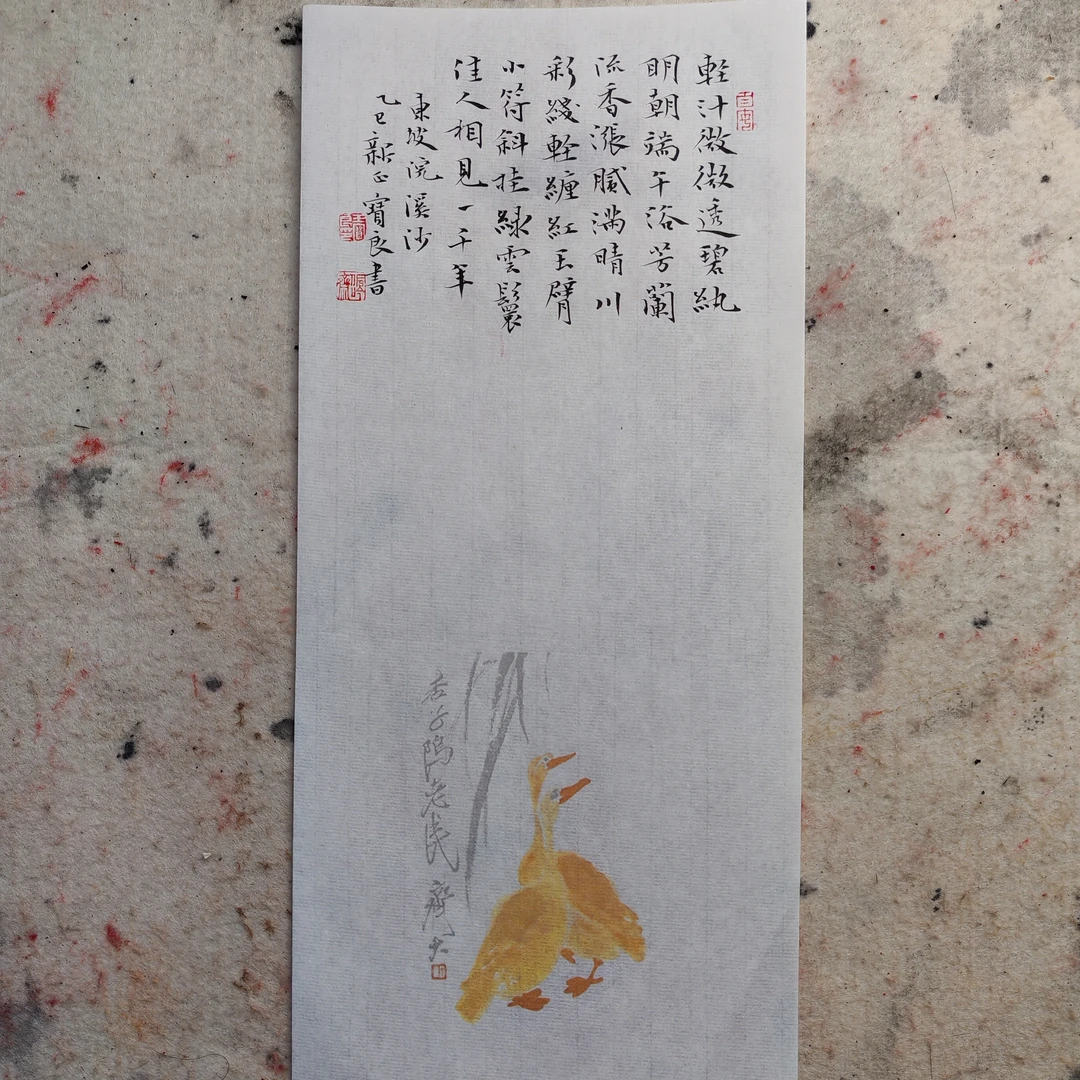 軽汗微微透碧紈
明朝端午浴芳蘭
流香漲膩滿晴川
彩綫軽纏紅玉臂
小符斜挂緑雲鬟
佳人相見一千年
東坡浣溪沙
乙巳新正寶良書
杏子隝老民 齊大